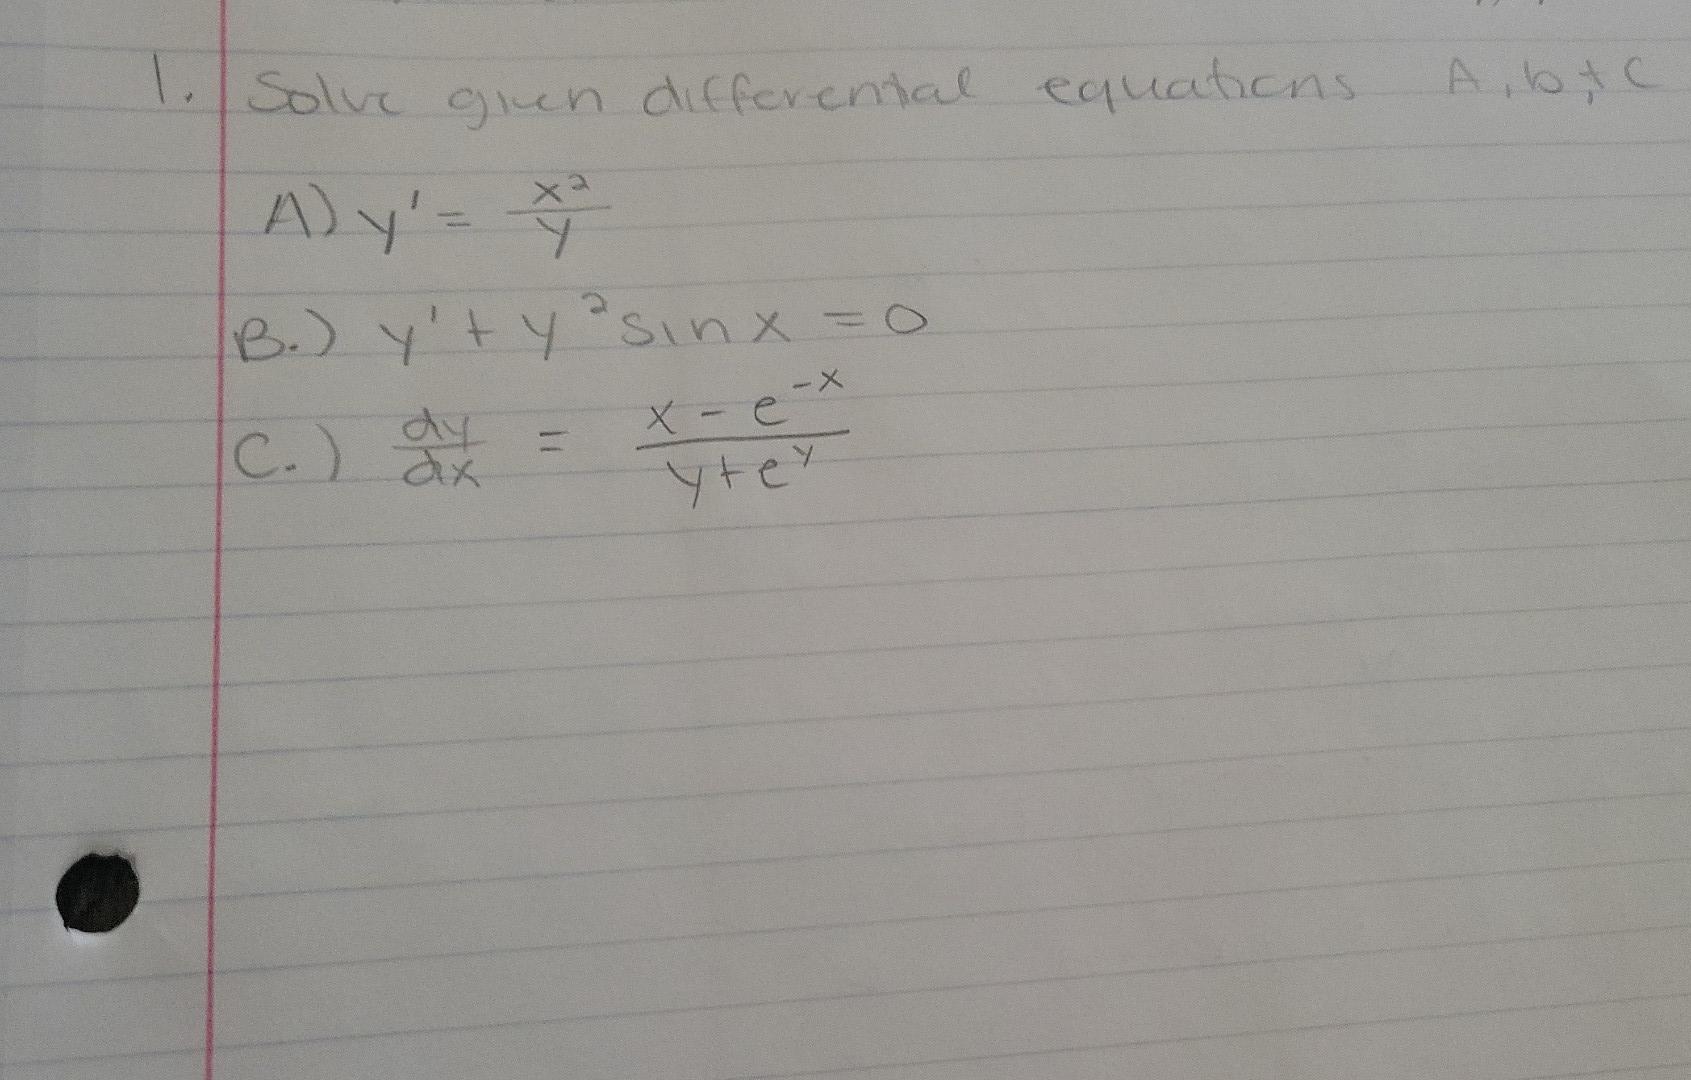 1. Solve given differential equations A, b, + C
A) y' = x²/y
B.) y' + y² sin x = 0
C.) dy/dx = x - e⁻ˣ / y + eʸ